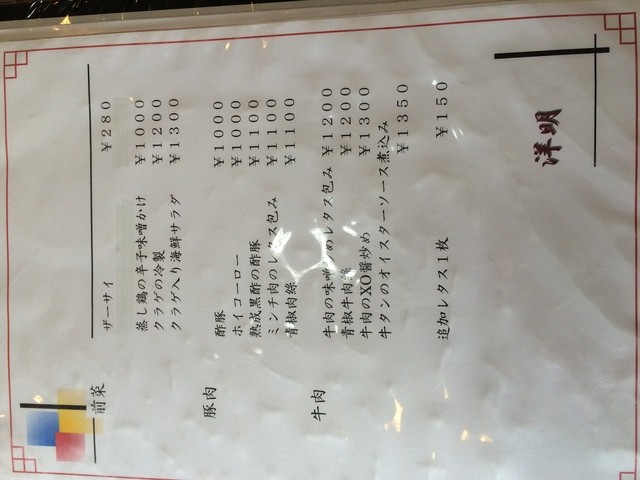 前菜
ザーサイ ￥２８０
蒸し鶏の辛子味噌かけ ￥１０００
クラゲの冷製 ￥１２００
クラゲ入り海鮮サラダ ￥１３００
豚肉
酢豚 ￥１０００
ホイコーロー ￥１０００
熟成黒酢の酢豚 ￥１１００
ミンチ肉のレタス包み ￥１１００
青椒肉絲 ￥１１００
牛肉
牛肉の味噌炒めレタス包み ￥１２００
青椒牛肉絲 ￥１２００
牛肉のXO醤炒め ￥１３００
牛タンのオイスターソース煮込み
￥１３５０
追加レタス１枚 ￥１５０
洋明